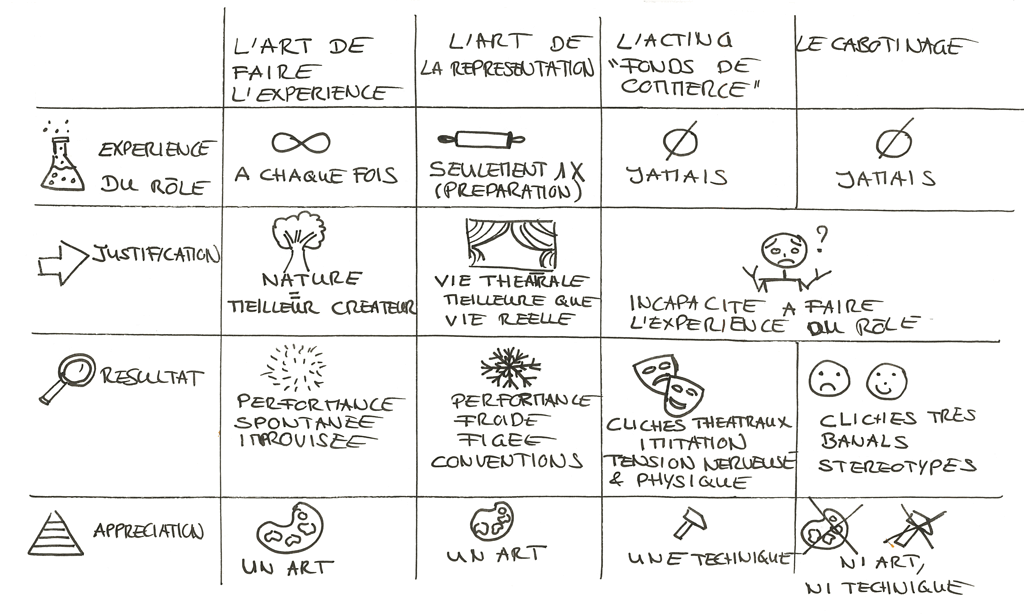 L'ART DE
FAIRE
L'EXPERIENCE
L'ART DE
LA REPRESENTATION
L'ACTING
"FONDS DE
COMMERCE"
LE CABOTINAGE
EXPERIENCE
DU RÔLE
A CHAQUE FOIS
SEULEMENT 1X
(PREPARATION)
JAMAIS
JAMAIS
JUSTIFICATION
NATURE
=
MEILLEUR CREATEUR
VIE THEATRALE
MEILLEURE QUE
VIE REELLE
?
INCAPACITE A FAIRE
L'EXPERIENCE DU RÔLE
RESULTAT
PERFORMANCE
SPONTANEE
IMPROVISEE
PERFORMANCE
FROIDE
FIGEE
CONVENTIONS
CLICHES THEATRAUX
IMITATION
TENSION NERVEUSE
& PHYSIQUE
CLICHES TRES
BANALS
STEREOTYPES
APPRECIATION
UN ART
UN ART
UNE TECHNIQUE
NI ART,
NI TECHNIQUE